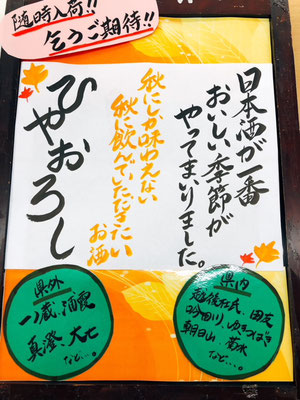 随時入荷!!
乞うご期待!!
日本酒が一番
おいしい季節が
やってまいりました。
秋にしか味わえない
秋に飲んでいただきたい
お酒
ひやおろし
県内
越後杜氏、田友
吟田川、ゆきつばき
朝日山、菊水
など…。
県外
一ノ蔵、酒壺
真澄、大七
など…。